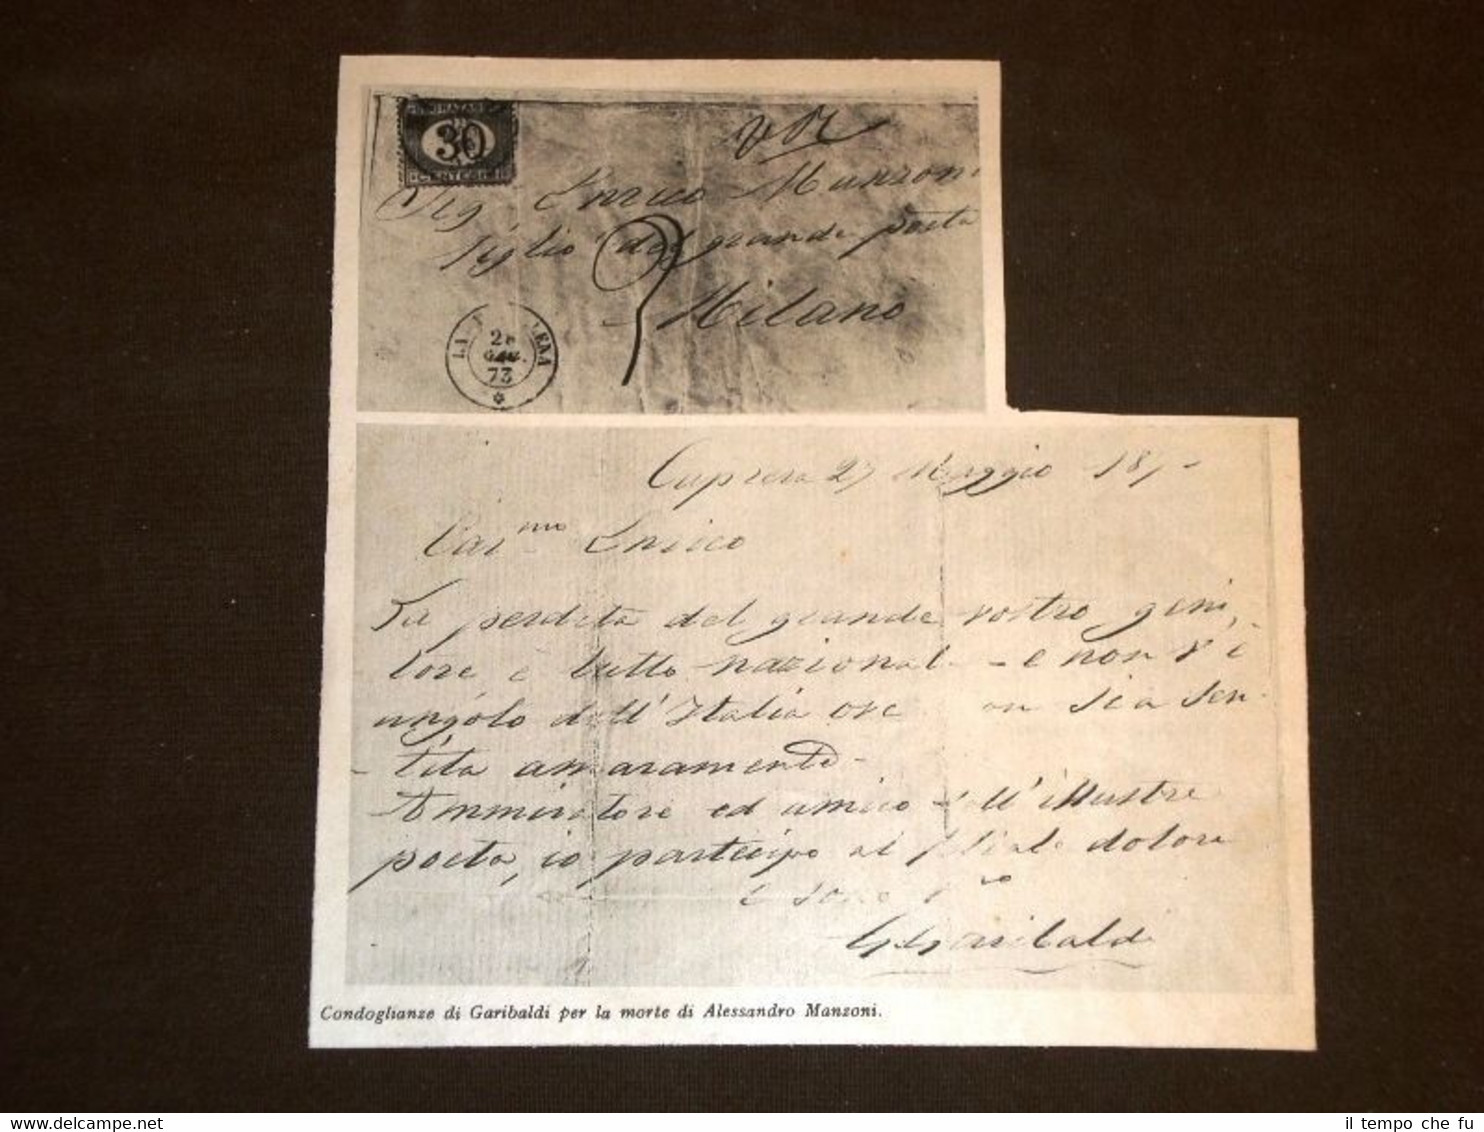 30
Sig Enrico Manzoni
figlio del grande poeta
Milano
GIU.
73
Caprera 27 Maggio 187
Car.mo Enrico
La perdita del grande vostro geni,
tore è tutta nazionale - e non v'è
angolo dell'Italia ove non sia sen-
-tita amaramente-
Ammiratore ed amico dell'illustre
poeta, io partecipo al filiale dolore
e sono
G Garibaldi
Condoglianze di Garibaldi per la morte di Alessandro Manzoni.
il tempo che fu